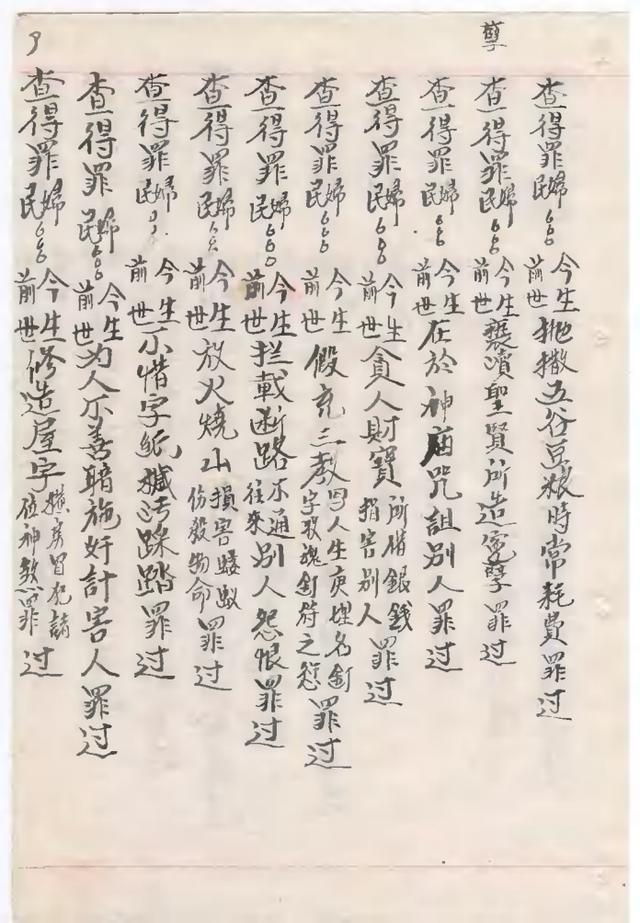 孽
查得罪民婦 今生前世拋撒五谷豆粮時常耗費罪过
查得罪民婦 今生前世褻瀆聖賢所造冤孽罪过
查得罪民婦 今生前世在於神庙咒詛别人罪过
查得罪民婦 今生前世貪人財寶所借銀錢 害别人罪过
查得罪民婦 今生前世假充三教写人生庚姓名釘字取魂釘符之愆罪过
查得罪民婦 今生前世拦截断路不通往來别人怨恨罪过
查得罪民婦 今生前世放火燒山損害螻蟻伤殺物命罪过
查得罪民婦 今生前世不惜字紙 污踩踏罪过
查得罪民婦 今生前世为人不善暗施奸計害人罪过
查得罪民婦 今生前世修造屋字 房冒犯諸位神煞罪过